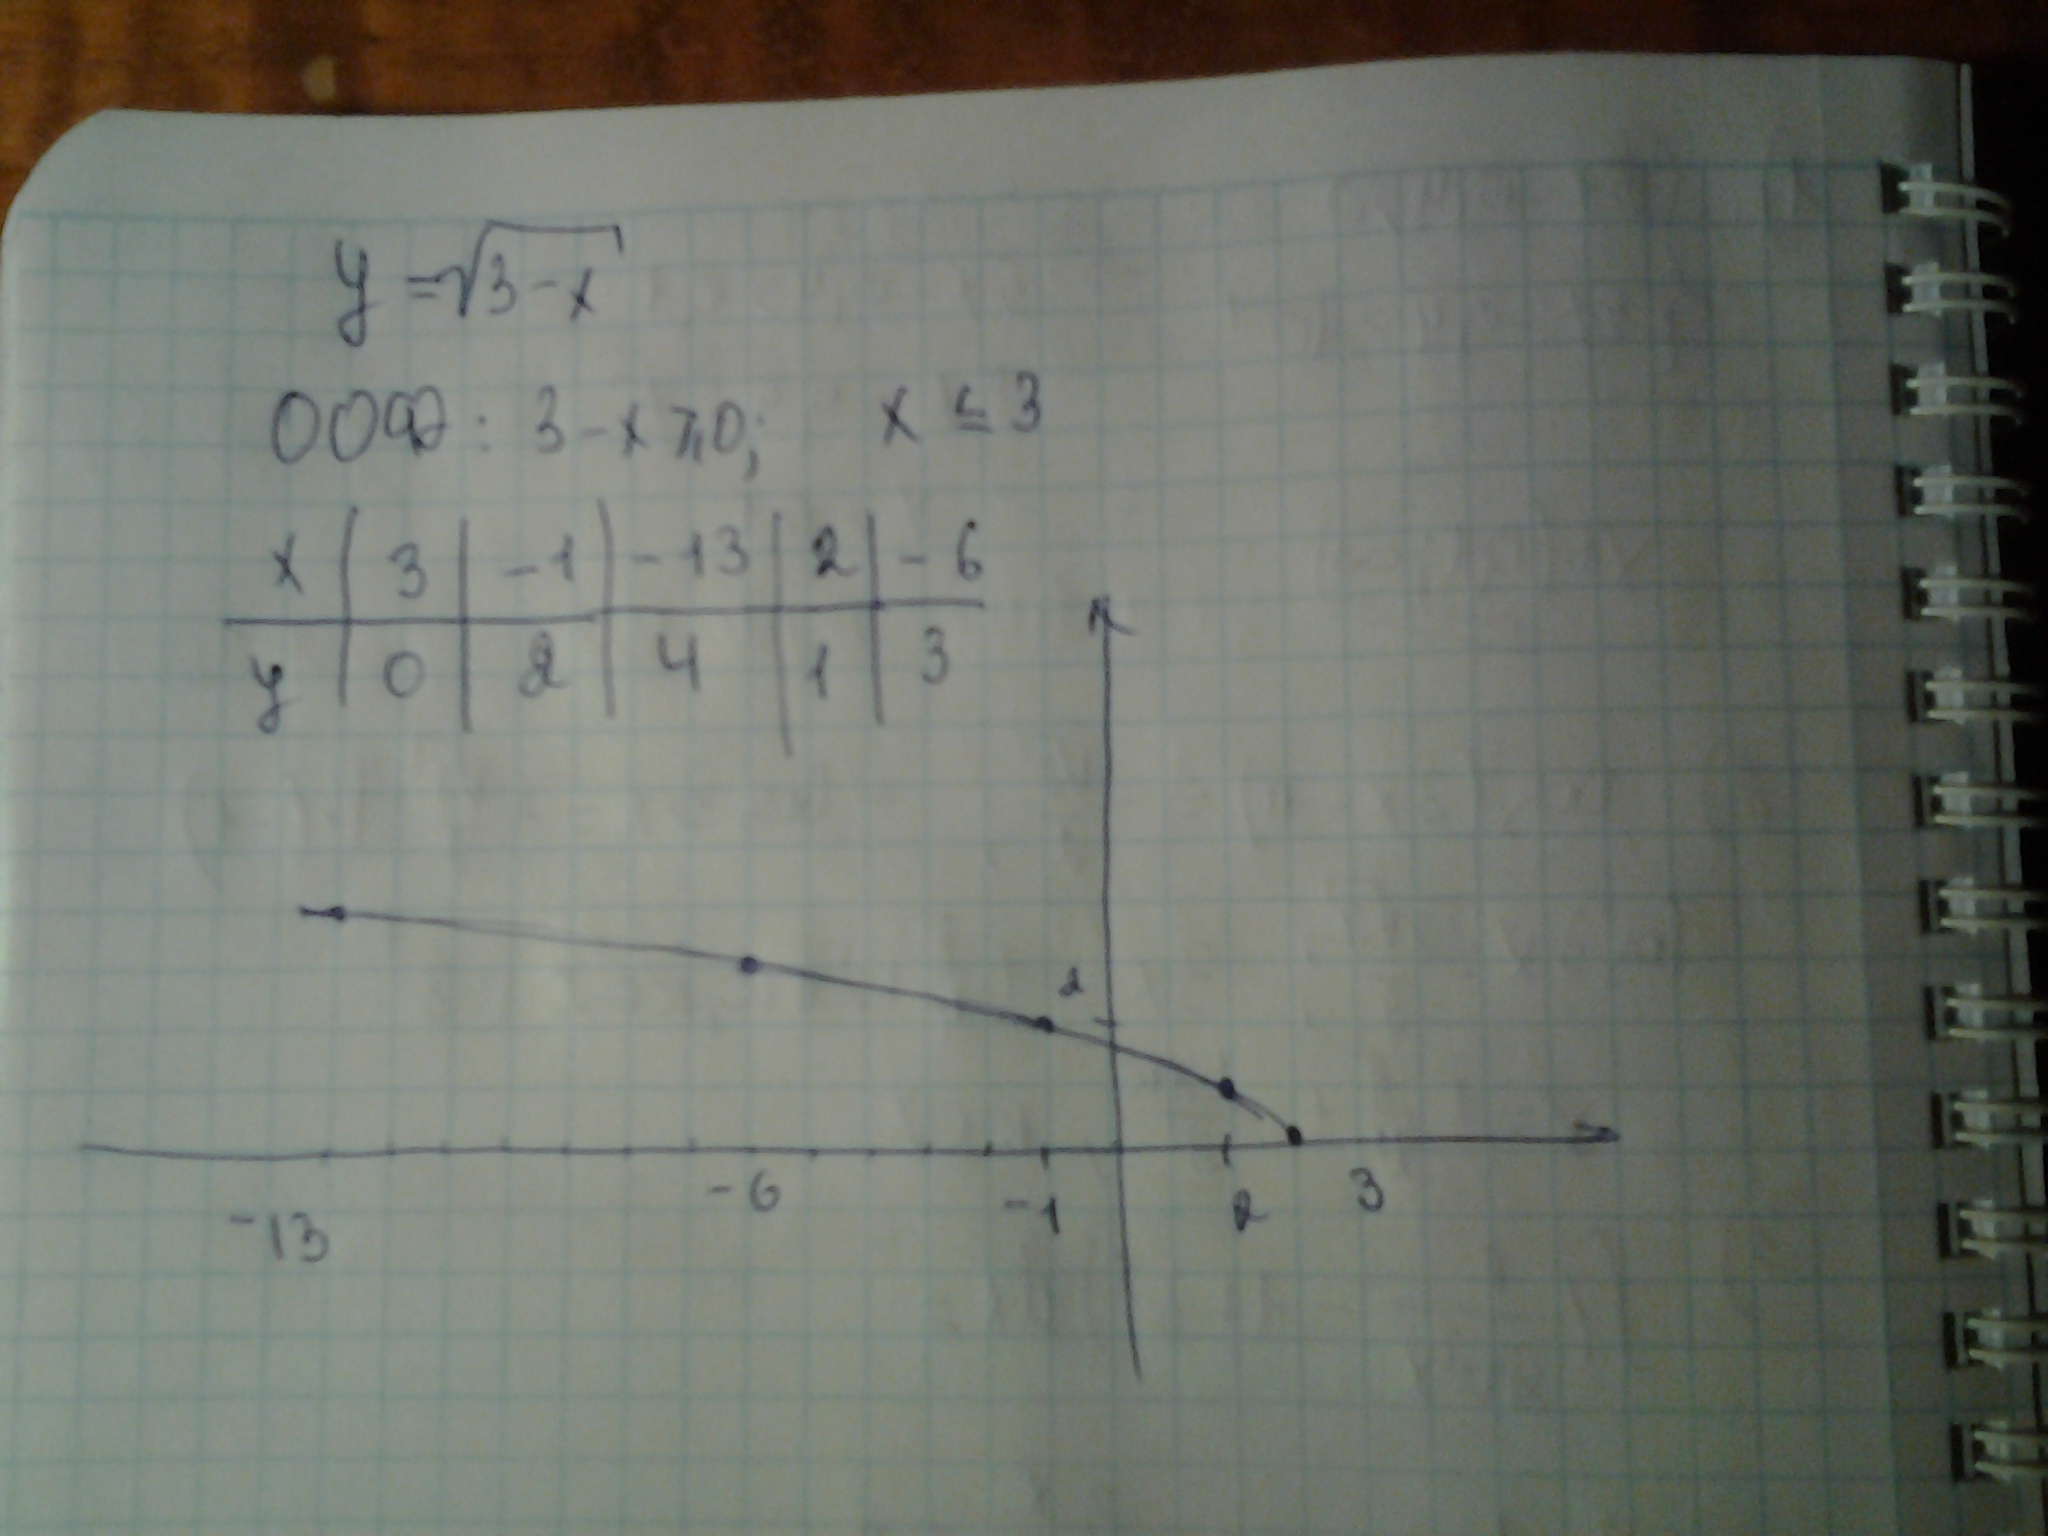 y = √3-x
ООФ : 3 - x ⩾ 0; x ≤ 3
x | 3 | -1 | -13 | 2 | -6
y | 0 | 2 | 4 | 1 | 3
2
-13 -6 -1 2 3